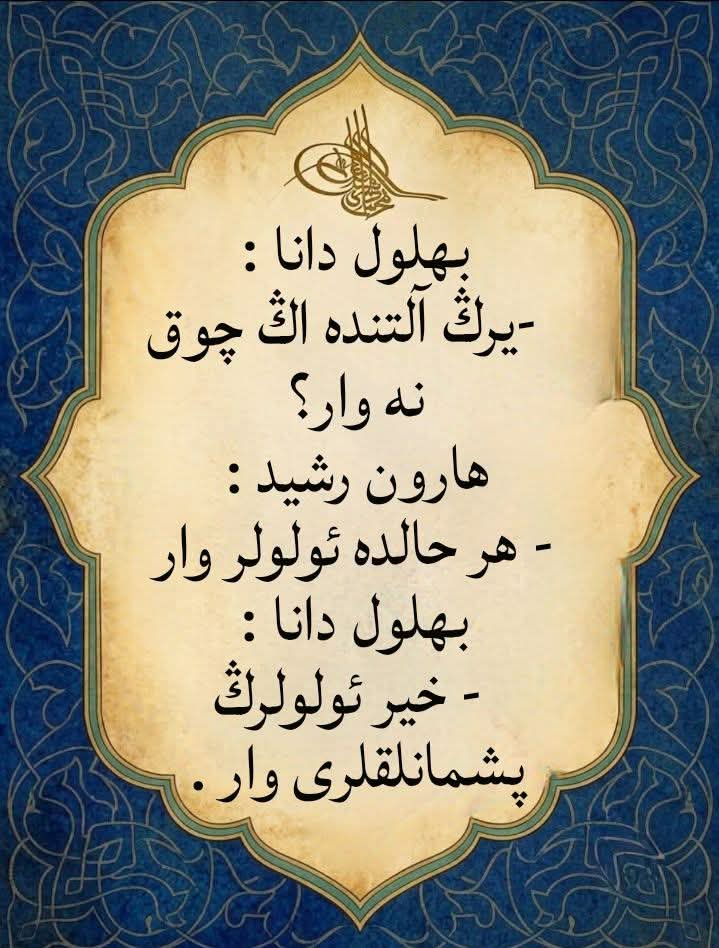 بهلول دانا :
-يرڭ آلتنده اڭ چوق
نه وار؟
هارون رشيد :
- هر حالده ئولولر وار
بهلول دانا :
- خير ئولولرڭ
پشمانلقلرى وار .